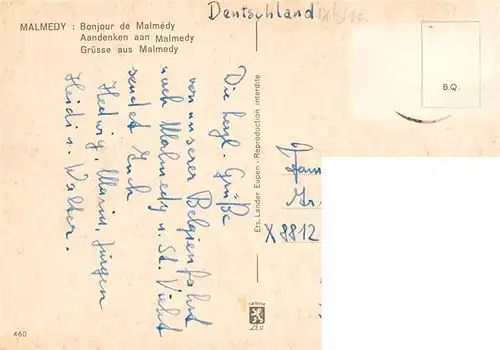 MALMEDY : Bonjour de Malmédy
Aandenken aan Malmedy
Grüsse aus Malmedy
Deutschland
B.Q.
Die herzl. Grüße
von unserer Belgienfahrt
nach Malmedy u. St. Vieht
sendet Euch
Hedwig, Maria, Jürgen
Heidi u. Walter.
Ets. Lander Eupen - Reproduction interdite
Fam
X 8812
LEU
460